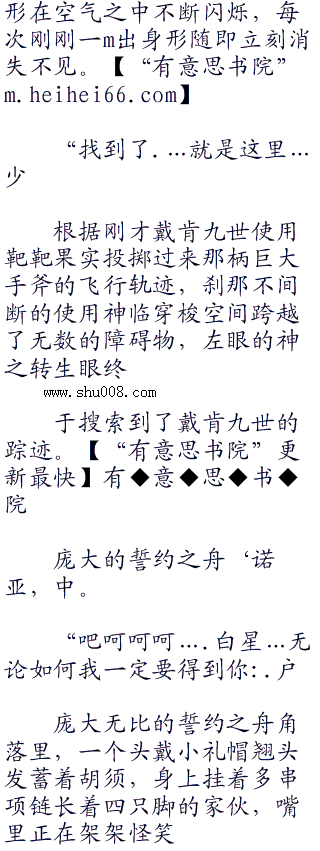 形在空气之中不断闪烁，每
次刚刚一m出身形随即立刻消
失不见。【“有意思书院”
m.heihei66.com】
“找到了....就是这里...
少
根据刚才戴肯九世使用
靶靶果实投掷过来那柄巨大
手斧的飞行轨迹，刹那不间
断的使用神临穿梭空间跨越
了无数的障碍物，左眼的神
之转生眼终
www.shu008.com
于搜索到了戴肯九世的
踪迹。【“有意思书院”更
新最快】有◆意◆思◆书◆
院
庞大的誓约之舟‘诺
亚，中。
“吧呵呵呵....白星...无
论如何我一定要得到你:.户
庞大无比的誓约之舟角
落里，一个头戴小礼帽翘头
发蓄着胡须，身上挂着多串
项链长着四只脚的家伙，嘴
里正在架架怪笑